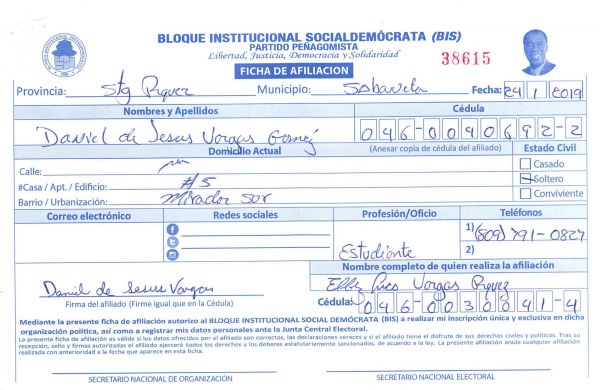 BLOQUE INSTITUCIONAL SOCIALDEMÓCRATA (BIS)
PARTIDO PEÑAGOMISTA
Libertad, Justicia, Democracia y Solidaridad
38615
FICHA DE AFILIACION
Provincia: Stg Rguez Municipio: Sabaneta Fecha: 24/1/2019
Nombres y Apellidos Cédula
Daniel de Jesus Vargas Gomez 046-0040692-2
Domicilio Actual (Anexar copia de cédula del afiliado) Estado Civil
Calle: Casado
#Casa / Apt. / Edificio: #5 Soltero
Barrio / Urbanización: Mirador Sur Conviviente
Correo electrónico Redes sociales Profesión/Oficio Teléfonos
1) (809) 791-0827
Estudiante 2)
Nombre completo de quien realiza la afiliación
Daniel de Jesus Vargas Vargas Rguez
Firma del afiliado (Firme igual que en la Cédula) Cédula: 046-0030041-4
Mediante la presente ficha de afiliación autorizo al BLOQUE INSTITUCIONAL SOCIAL DEMÓCRATA (BIS) a realizar mi inscripción única y exclusiva en dicha
organización política, así como a registrar mis datos personales ante la Junta Central Electoral.
La presente ficha de afiliación es válida si los datos ofrecidos por el afiliado son correctos, las declaraciones veraces y si el afiliado tiene el disfrute de sus derechos civiles y políticos. Tras su
recepción, sello y firmas autorizadas el afiliado ejercerá todos los derechos y los deberes estatutariamente sancionados, de acuerdo a la ley. La presente afiliación anula cualquier afiliación
realizada con anterioridad a la fecha que aparece en esta ficha.
SECRETARIO NACIONAL DE ORGANIZACIÓN SECRETARIO NACIONAL ELECTORAL